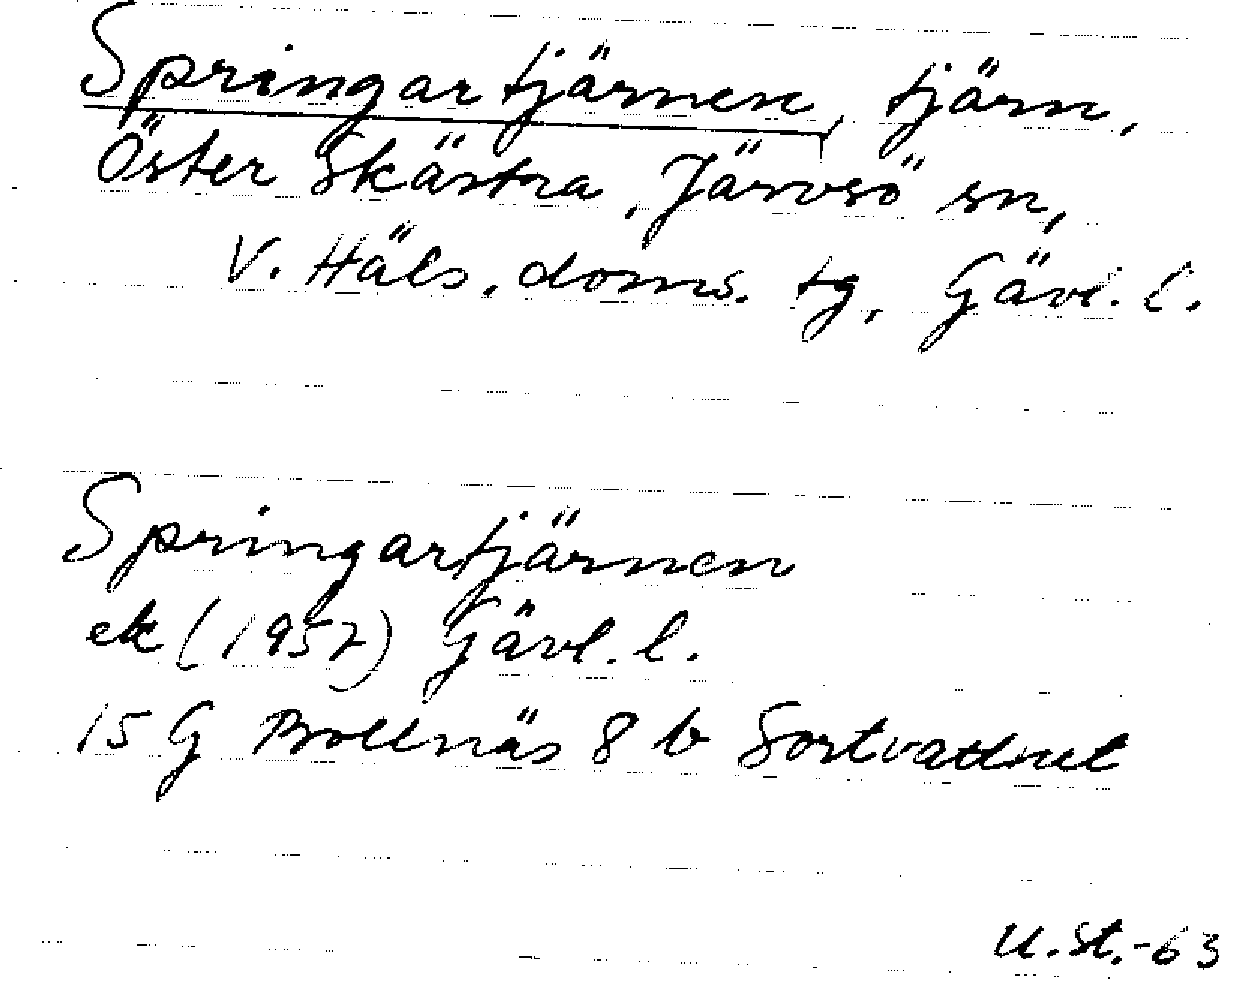 Springartjärnen, tjärn,
Öster Skästra, Järvsö sn,
V. Häls. doms. tg, Gävl. l.
Springartjärnen
ek (1957) Gävl. l.
15 G Bollnäs 8 b Sortvattnet
U.St.-63